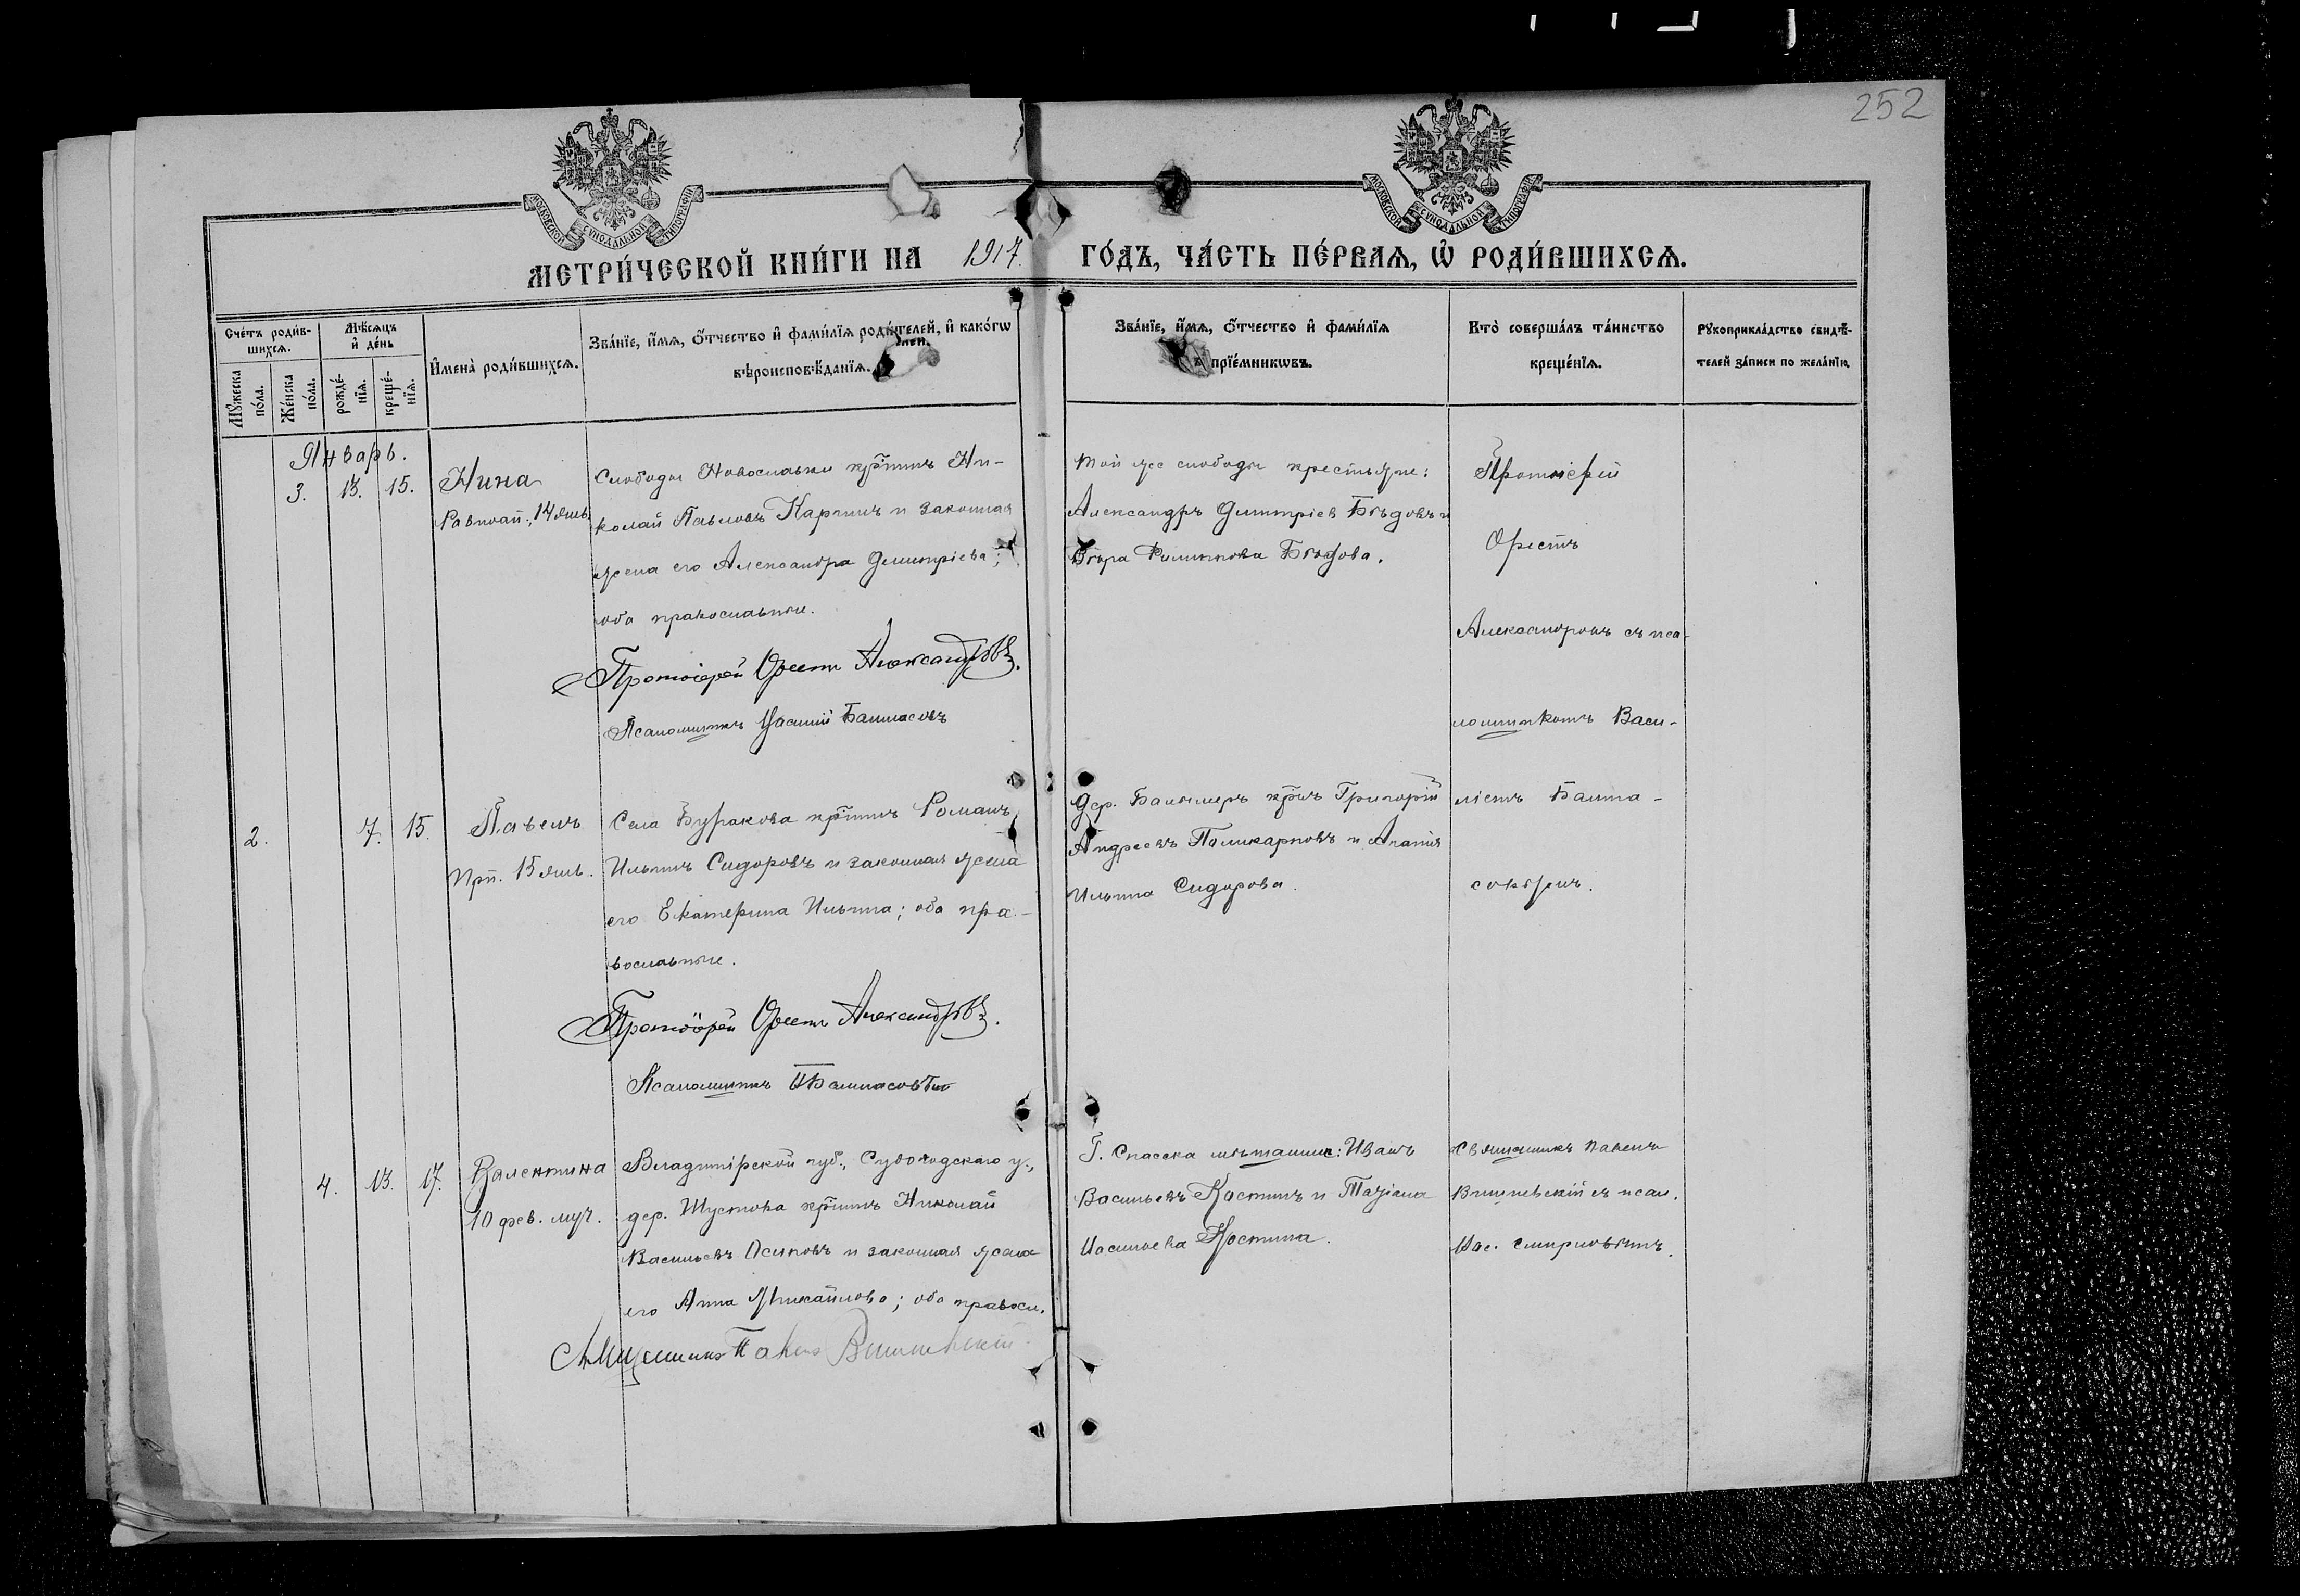 252
МОСКОВСКОЙ СѴНОДАЛЬНОЙ ТИПОГРАФІИ
МОСКОВСКОЙ СѴНОДАЛЬНОЙ ТИПОГРАФІИ
МЕТРИ́ЧЕСКОЙ КНИ́ГИ НА 1917. ГО́ДЪ, ЧА́СТЬ ПЕ́РВАЯ, Ѡ҆ РОДИ́ВШИХСЯ.
Сче́тъ роди́в-
шихся.
Мѣ́сяцъ
и҆ де́нь
Мꙋ́жеска
по́ла.
Же́нска
по́ла.
рожде́-
нїя.
креще́-
нїя.
И҆мена̀ роди́вшихся.
Зва́нїе, и҆́мя, ѻ҆́тчество и҆ фами́лїя роди́телей, и҆ како́гѡ
вѣроисповѣ́данїя.
Зва́нїе, и҆́мя, ѻ҆́тчество и҆ фами́лїя
прїе́мникѡвъ.
Кто̀ соверша́лъ та́инство
креще́нїя.
Рꙋкоприкла́дство свидѣ́-
телей за́писи по жела́нїю.
Январь.
3. 13. 15.
Нина
Равноап., 14 янв.
Слободы Новославки кр̃нинъ Ни-
колай Павловъ Карпинъ и законная
жена его Александра Димитріева;
оба православные.
Протоіерей Орестъ Александровъ.
Псаломщикъ Василій Балмасовъ
Той же слободы крестьяне:
Александръ Димитріев Бѣдовъ и
Вѣра Филиппова Бѣдова.
Протоіерей
Орестъ
Александровъ съ пса-
ломщикомъ Васи-
ліемъ Балма-
совымъ.
2. 7. 15.
Павелъ
Прп. 15 янв.
Села Буракова кр̃нинъ Романъ
Ильинъ Сидоровъ и законная жена
его Екатерина Ильина; оба пра-
вославные.
Протоіерей Орестъ Александровъ.
Псаломщикъ В Балмасовъ
Дер. Балымеръ кр̃нъ Григорій
Андреевъ Поликарповъ и
Ильина Сидорова.
4. 13. 17.
Валентина
10 фев. муч.
Владимірской губ., Судогодскаго у.,
дер. Шустова кр̃нинъ Николай
Васильевъ Осиповъ и законная жена
его Анна Михайлова; оба правосл.
Священникъ Павелъ Вишневскій
Г. Спасска мѣщане: Иванъ
Васильевъ Костинъ и Татіана
Васильева Костина.
Священникъ Павелъ
Вишневскій съ псал.
Вас. Смирновымъ.